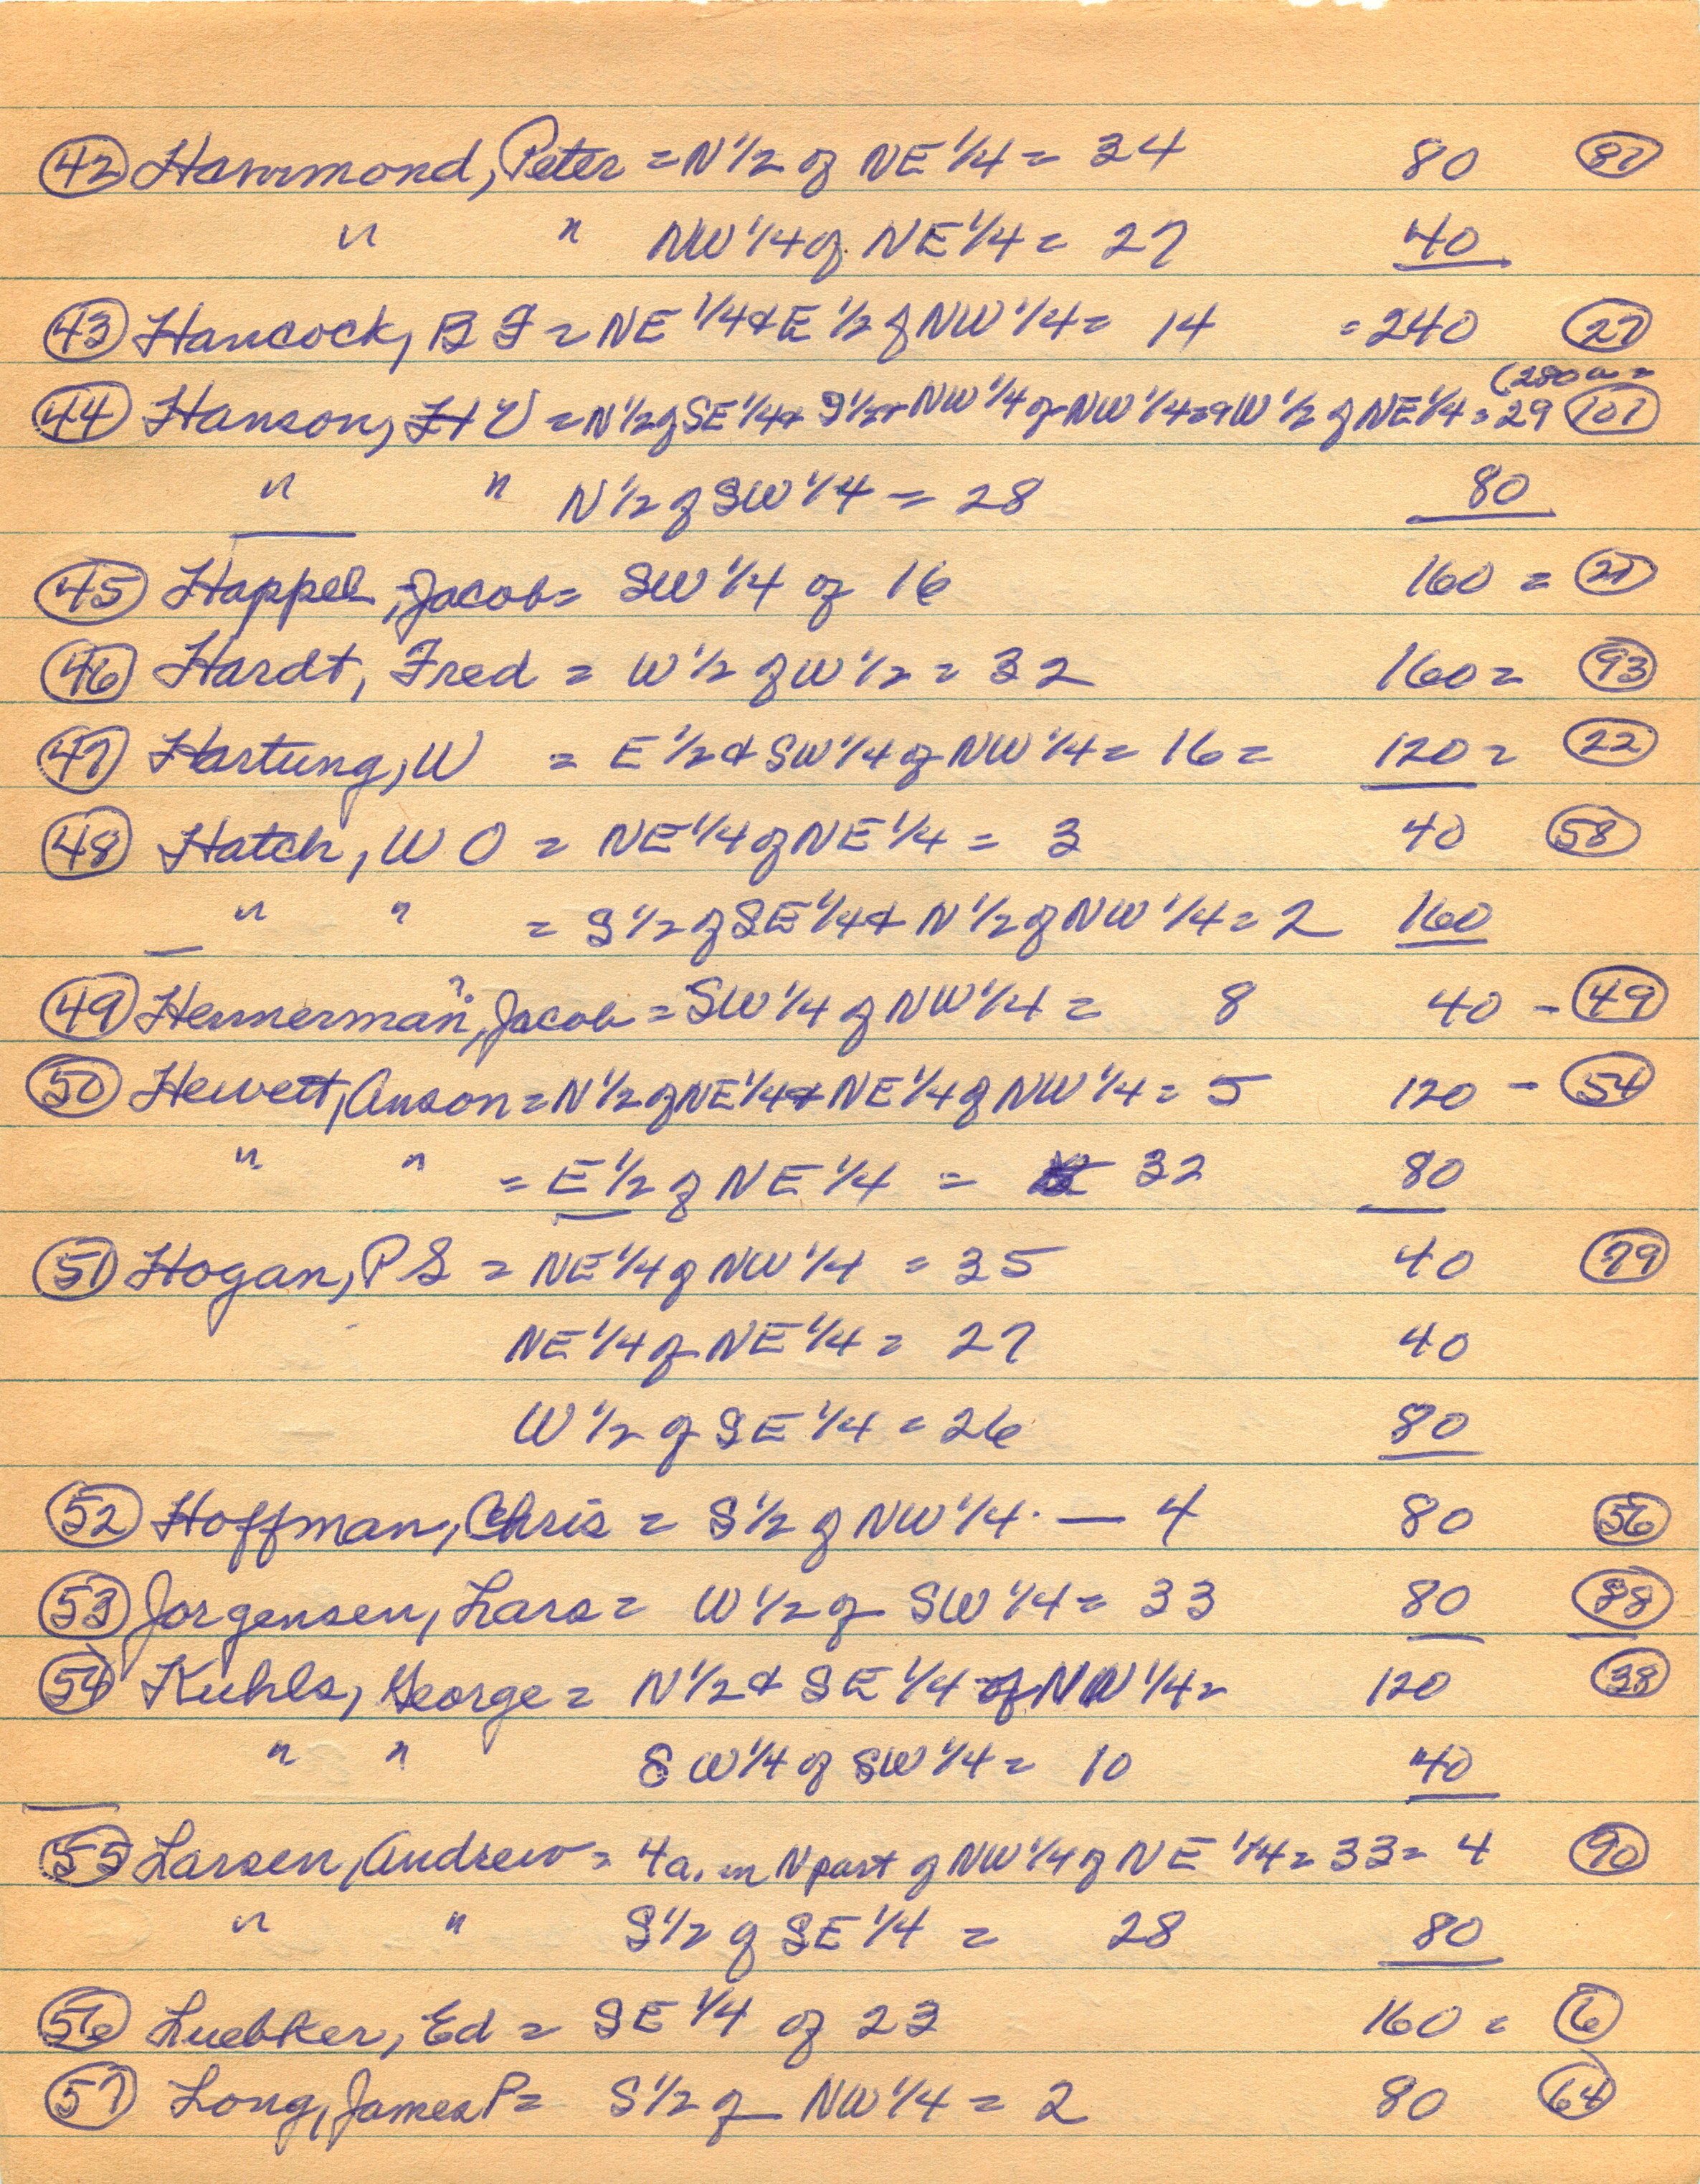 42 Hammond, Peter = N 1/2 of NE 1/4 = 34 80 87
" " NW 1/4 of NE 1/4 = 27 40
43 Hancock, B F = NE 1/4 & E 1/2 of NW 1/4 = 14 = 240 27
(280 a =
44 Hanson, H V = N 1/2 of SE 1/4 & S 1/2 + NW 1/4 of NW 1/4 = 9 W 1/2 of NE 1/4 = 29 101
" " N 1/2 of SW 1/4 = 28 80
45 Happel, Jacob = SW 1/4 of 16 160 = 21
46 Hardt, Fred = W 1/2 of W 1/2 = 32 160 = 93
47 Hartung, W = E 1/2 & SW 1/4 of NW 1/4 = 16 = 120 = 22
48 Hatch, W O = NE 1/4 of NE 1/4 = 3 40 58
" " = S 1/2 of SE 1/4 & N 1/2 of NW 1/4 = 2 160
49 Hennerman ?, Jacob = SW 1/4 of NW 1/4 = 8 40 - 49
50 Hewett, Anson = N 1/2 of NE 1/4 & NE 1/4 of NW 1/4 = 5 120 - 54
" " = E 1/2 of NE 1/4 = 32 80
51 Hogan, P S = NE 1/4 of NW 1/4 = 35 40 79
NE 1/4 of NE 1/4 = 27 40
W 1/2 of SE 1/4 = 26 80
52 Hoffman, Chris = S 1/2 of NW 1/4. — 4 80 56
53 Jorgensen, Lars = W 1/2 of SW 1/4 = 33 80 88
54 Kuhls, George = N 1/2 & SE 1/4 of NW 1/4 = 120 38
" " SW 1/4 of SW 1/4 = 10 40
55 Larsen, Andrew = 4 a. in N part of NW 1/4 of NE 1/4 = 33 = 4 90
" " S 1/2 of SE 1/4 = 28 80
56 Luebker, Ed = SE 1/4 of 23 160 = 6
57 Long, James P = S 1/2 of NW 1/4 = 2 80 64